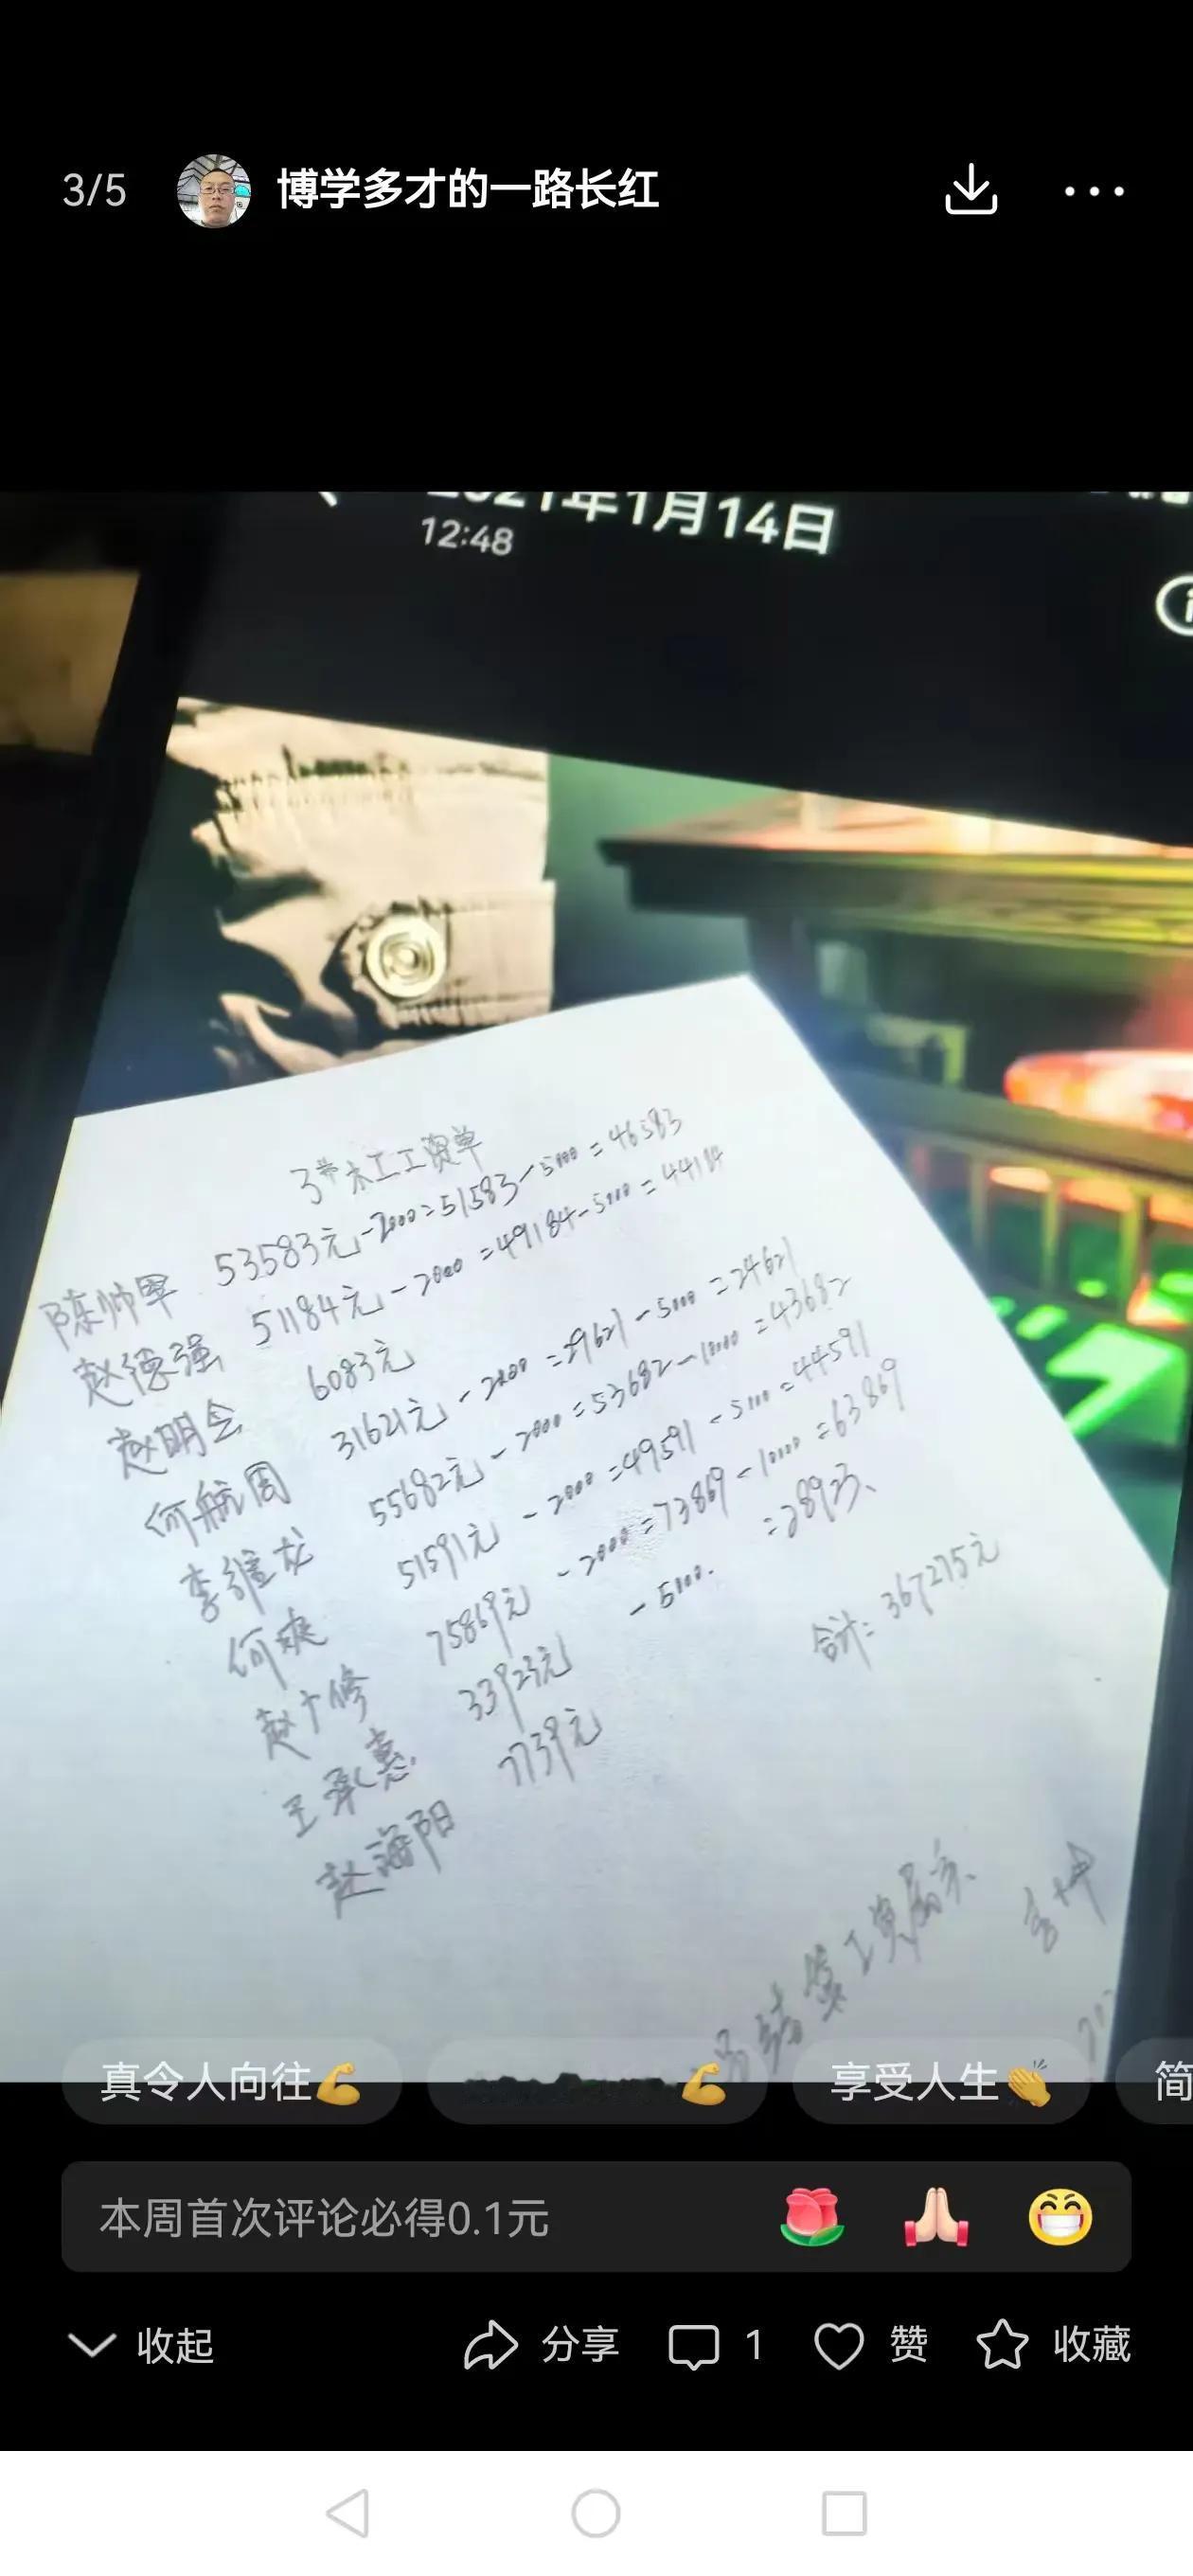 3/5 博学多才的一路长红
2021年1月14日
12:48
3#木工工资单
陈帅军 53583元-2000=51583-5000=46583
赵德强 51184元-2000=49184-5000=44184
赵明会 6083元
何航周 31621元-2000=29621-5000=24621
李维龙 55682元-2000=53682-10000=43682
何爽 51591元-2000=49591-5000=44591
赵十修 75869元-2000=73869-10000=63869
王承惠 33923元-5000.=28923、
赵海阳 7739元
合计:367275元
工资
真令人向往💪
💪
享受人生👏
简
本周首次评论必得0.1元
收起 分享 1 赞 收藏